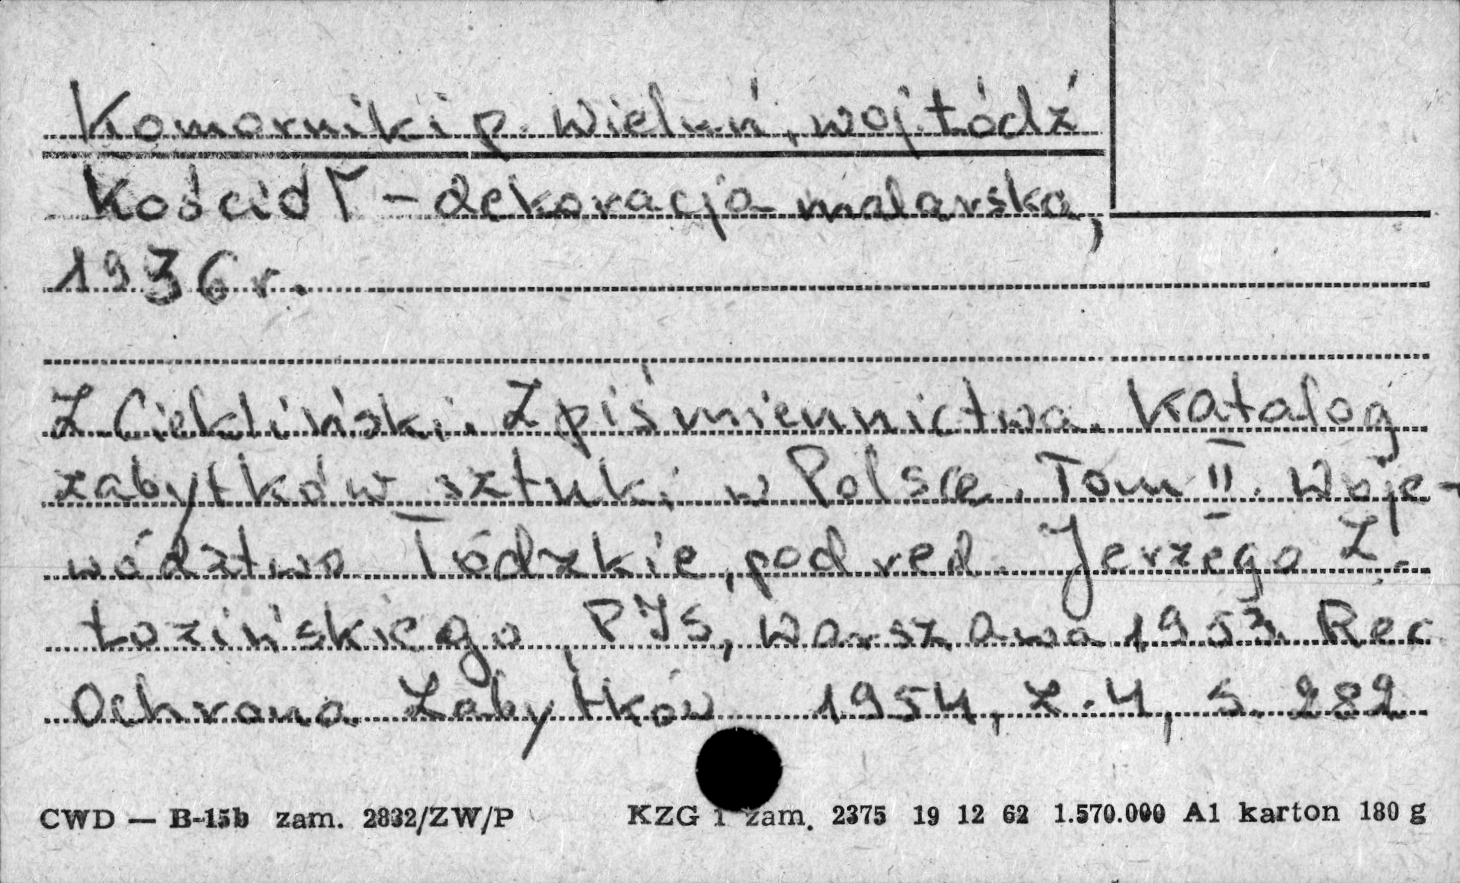 Komorniki p. Wieluń, woj. Łódź
Kościół - dekoracja malarska,
1936 r.
Z. Ciekliński. Z piśmiennictwa. Katalog
zabytków sztuki w Polsce. Tom II. Woje-
wództwo Łódzkie, pod red. Jerzego Z.
Łozińskiego, PIS, Warszawa 1953. Rec
Ochrona Zabytków 1954, z. 4, s. 282
CWD — B-15b zam. 2832/ZW/P KZG 1 zam. 2375 19 12 62 1.570.000 A1 karton 180 g